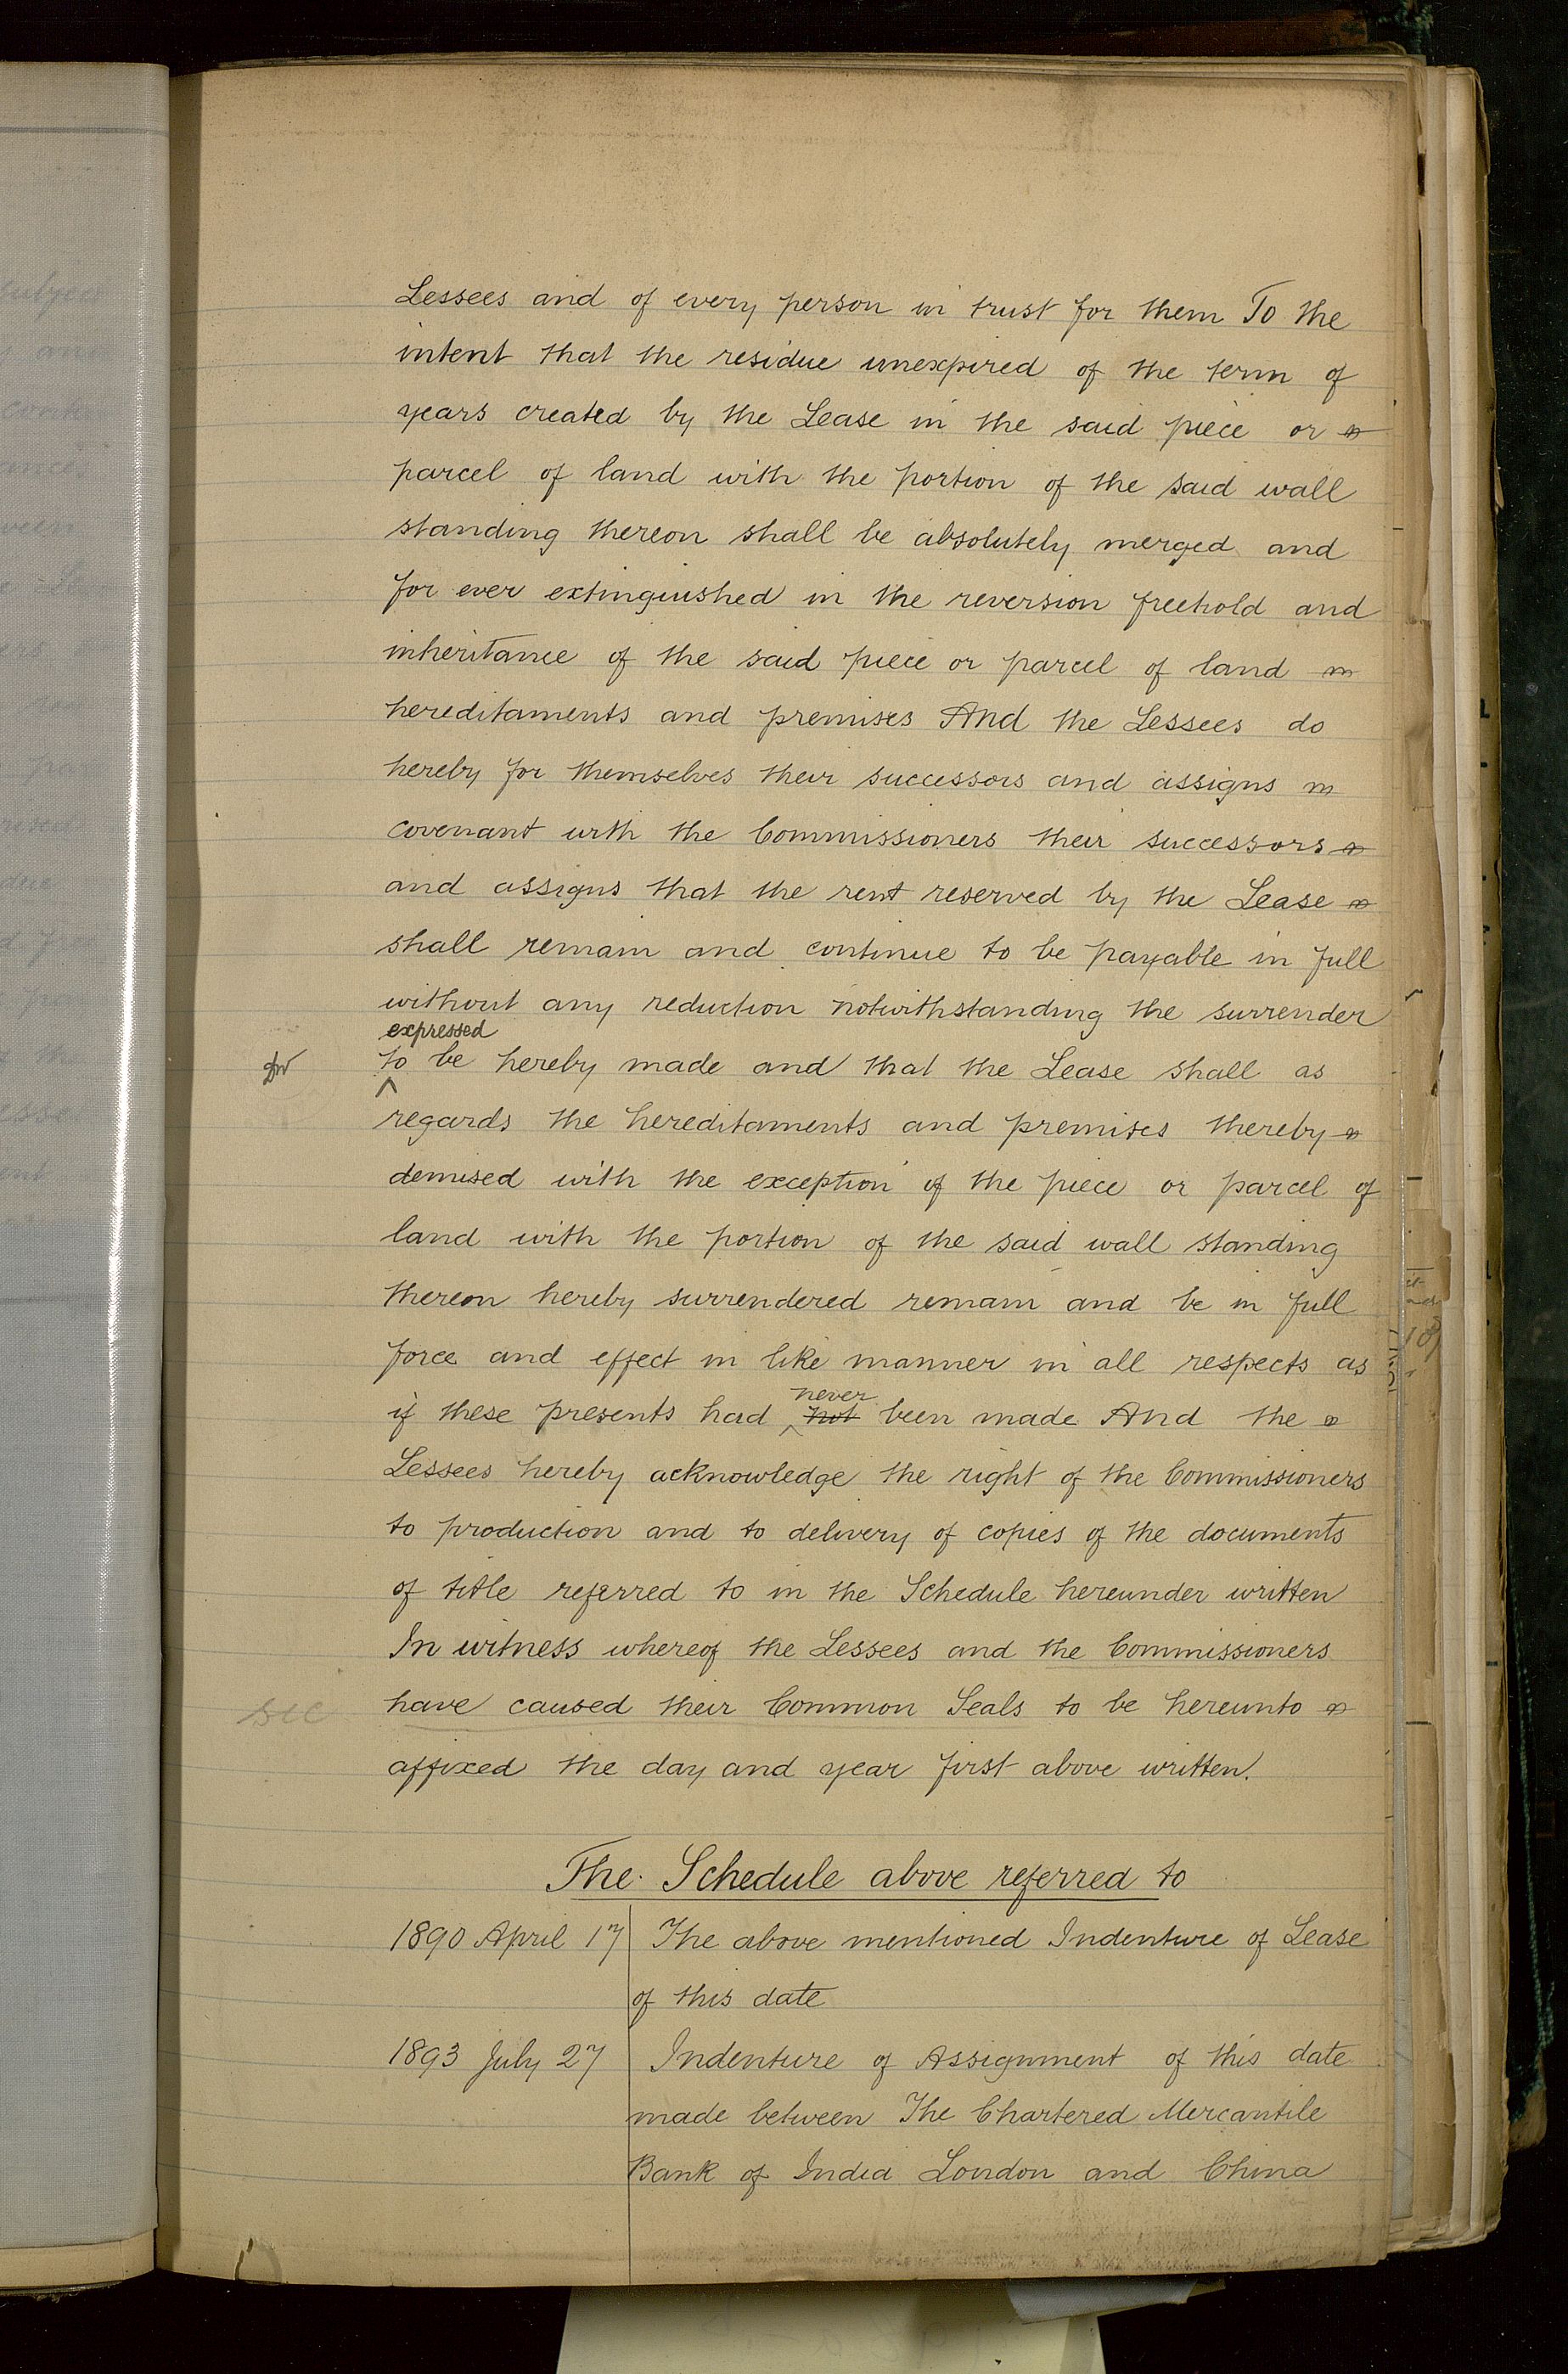 Lessees and of every person in trust for them To the
intent that the residue unexpired of the term of
years created by the Lease in the said piece or
parcel of land with the portion of the said wall
standing thereon shall be absolutely merged and
for ever extinguished in the reversion freehold and
inheritance of the said piece or parcel of land
hereditaments and premises And the Lessees do
hereby for themselves their successors and assigns
covenant with the Commissioners their successors
and assigns that the rent reserved by the Lease
shall remain and continue to be payable in full
without any reduction notwithstanding the surrender
expressed
to be hereby made and that the Lease shall as
regards the hereditaments and premises thereby
demised with the exception of the piece or parcel of
land with the portion of the said wall standing
thereon hereby surrendered remain and be in full
force and effect in like manner in all respects as
never
if these presents had not been made And the
Lessees hereby acknowledge the right of the Commissioners
to production and to delivery of copies of the documents
of title referred to in the Schedule hereunder written
In witness whereof the Lessees and the Commissioners
sic have caused their Common Seals to be hereunto
affixed the day and year first above written.
The Schedule above referred to
1890 April 17 The above mentioned Indenture of Lease
of this date
1893 July 27 Indenture of Assignment of this date
made between The Chartered Mercantile
Bank of India London and China